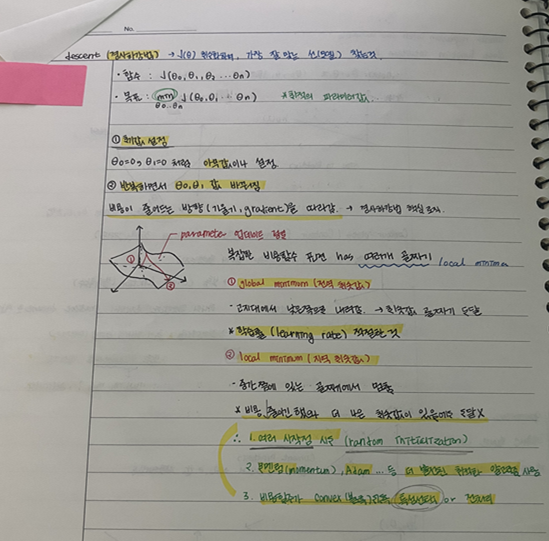 No.
descent (경사하강법) → J(θ) 최소화하며, 가장 잘 맞는 선(모델) 찾는것
· 함수 : J(θ0, θ1, θ2 ··· θn)
· 목표 : min J(θ0, θ1 ··· θn) *최적의 파라미터값
θ0...θn
① 초기값 설정
θ0=0, θ1=0 처럼 아무값이나 설정
② 반복하면서 θ0, θ1 값 바꾸기
비용이 줄어드는 방향 (기울기, gradient)을 따라감. → 경사하강법
parameter 업데이트
복잡한 비용함수 표면 has 여러개 골짜기 local minima
① global minimum (전역 최솟값)
- 고지대에서 낮은쪽으로 내려감. → 최솟값 골짜기 도달
* 학습률 (learning rate) 적절한 것
② local minimum (지역 최솟값)
- 중간쯤에 있는 골짜기에서 멈춤
* 비용 줄이긴 했으나 더 나은 최솟값이 있음에도 도달 X
∴ 1. 여러 시작점 시도 (random initialization)
2. 모멘텀(momentum), Adam ... 등 더 발전된 최적화 알고리즘 사용
3. 비용함수가 convex (볼록) or